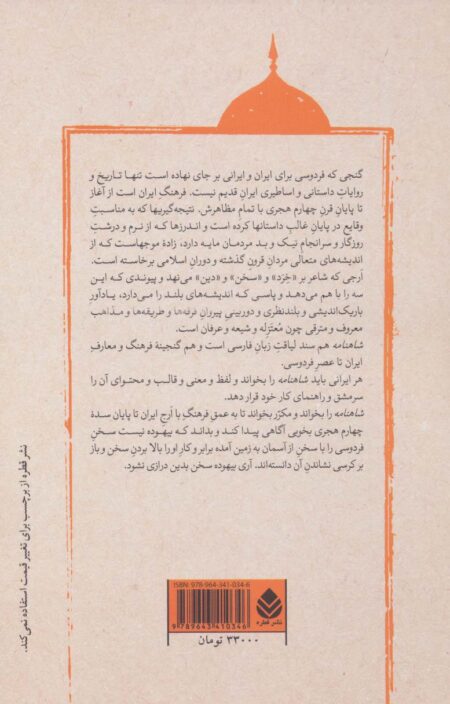 گنجی که فردوسی برای ایران و ایرانی بر جای نهاده است تنها تاریخ و
روایاتِ داستانی و اساطیری ایرانِ قدیم نیست. فرهنگِ ایران است از آغاز
تا پایانِ قرنِ چهارم هجری با تمام مظاهرش. نتیجه‌گیریها که به مناسبتِ
وقایع در پایان غالبِ داستانها کرده است و اندرزها که از نرم و درشتِ
روزگار و سرانجام نیک و بد مردمان مایه دارد، زادهٔ موجهاست که از
اندیشه‌های متعالی مردانِ قرون گذشته و دورانِ اسلامی برخاسته است.
ارجی که شاعر بر «خِرَد» و «سخن» و «دین» می‌نهد و پیوندی که این
سه را با هم می‌دهد و پاسی که اندیشه‌های بلند را می‌دارد، یادآور
باریک‌اندیشی و بلندنظری و دوربینیِ پیروانِ فرقه‌ها و طریقه‌ها و مذاهب
معروف و مترقی چون مُعتَزِله و شیعه و عرفان است.
شاهنامه هم سند لیاقتِ زبانِ فارسی است و هم گنجینهٔ فرهنگ و معارفِ
ایران تا عصرِ فردوسی.
هر ایرانی باید شاهنامه را بخواند و لفظ و معنی و قالب و محتوای آن را
سرمشق و راهنمای کار خود قرار دهد.
شاهنامه را بخواند و مکرّر بخواند تا به عمقِ فرهنگِ با ارجِ ایران تا پایان سدهٔ
چهارم هجری بخوبی آگاهی پیدا کند و بداند که بیهوده نیست سخنِ
فردوسی را با سخنِ از آسمان به زمین آمده برابر و کار او را بالا بردنِ سخن و باز
بر کرسی نشاندنِ آن دانسته‌اند. آری بیهوده سخن بدین درازی نشود.
نشر قطره از برچسب برای تغییر قیمت استفاده نمی‌کند.
ISBN: 978-964-341-034-6
9 789643 410346
نشر قطره
۳۳۰۰۰ تومان